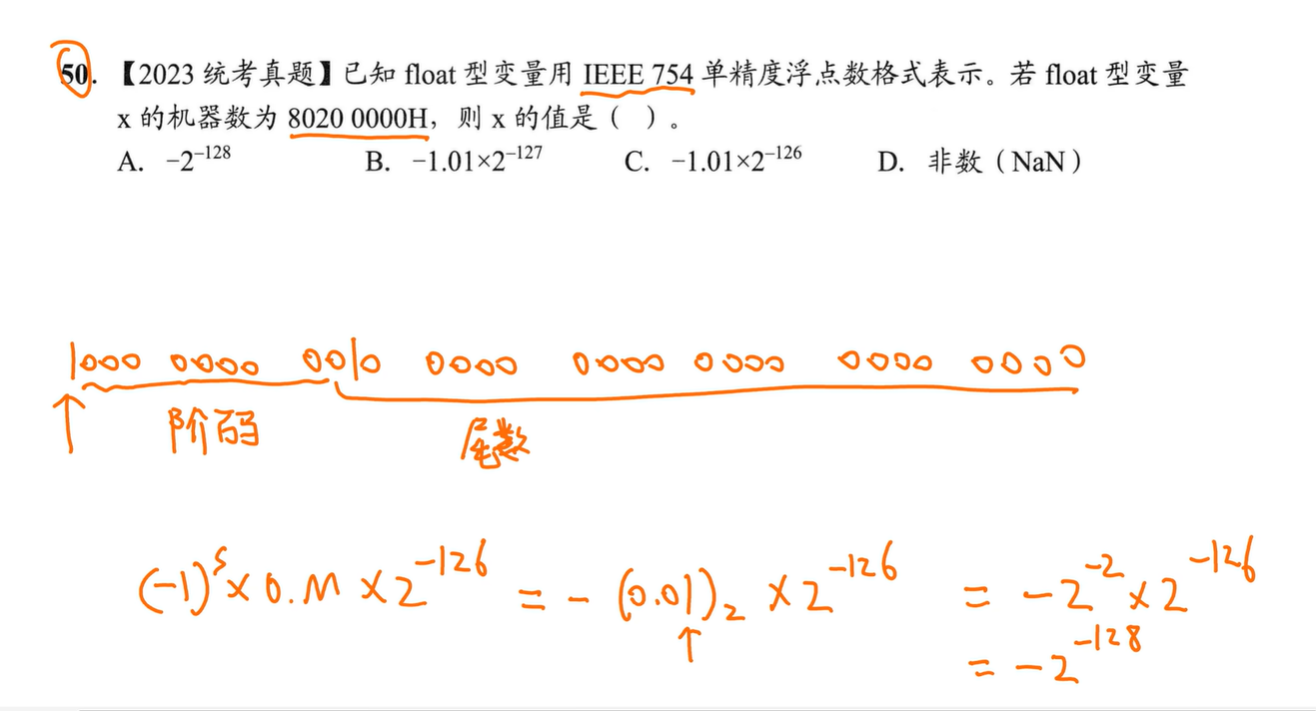 50. 【2023 统考真题】已知 float 型变量用 IEEE 754 单精度浮点数格式表示。若 float 型变量
x 的机器数为 8020 0000H，则 x 的值是（ ）。
A. −2⁻¹²⁸ B. −1.01×2⁻¹²⁷ C. −1.01×2⁻¹²⁶ D. 非数（NaN）
1000 0000 0010 0000 0000 0000 0000 0000
↑ 阶码 尾数
(-1)ˢ×0.M×2⁻¹²⁶ = -(0.01)₂×2⁻¹²⁶ = -2⁻²×2⁻¹²⁶
↑ = -2⁻¹²⁸